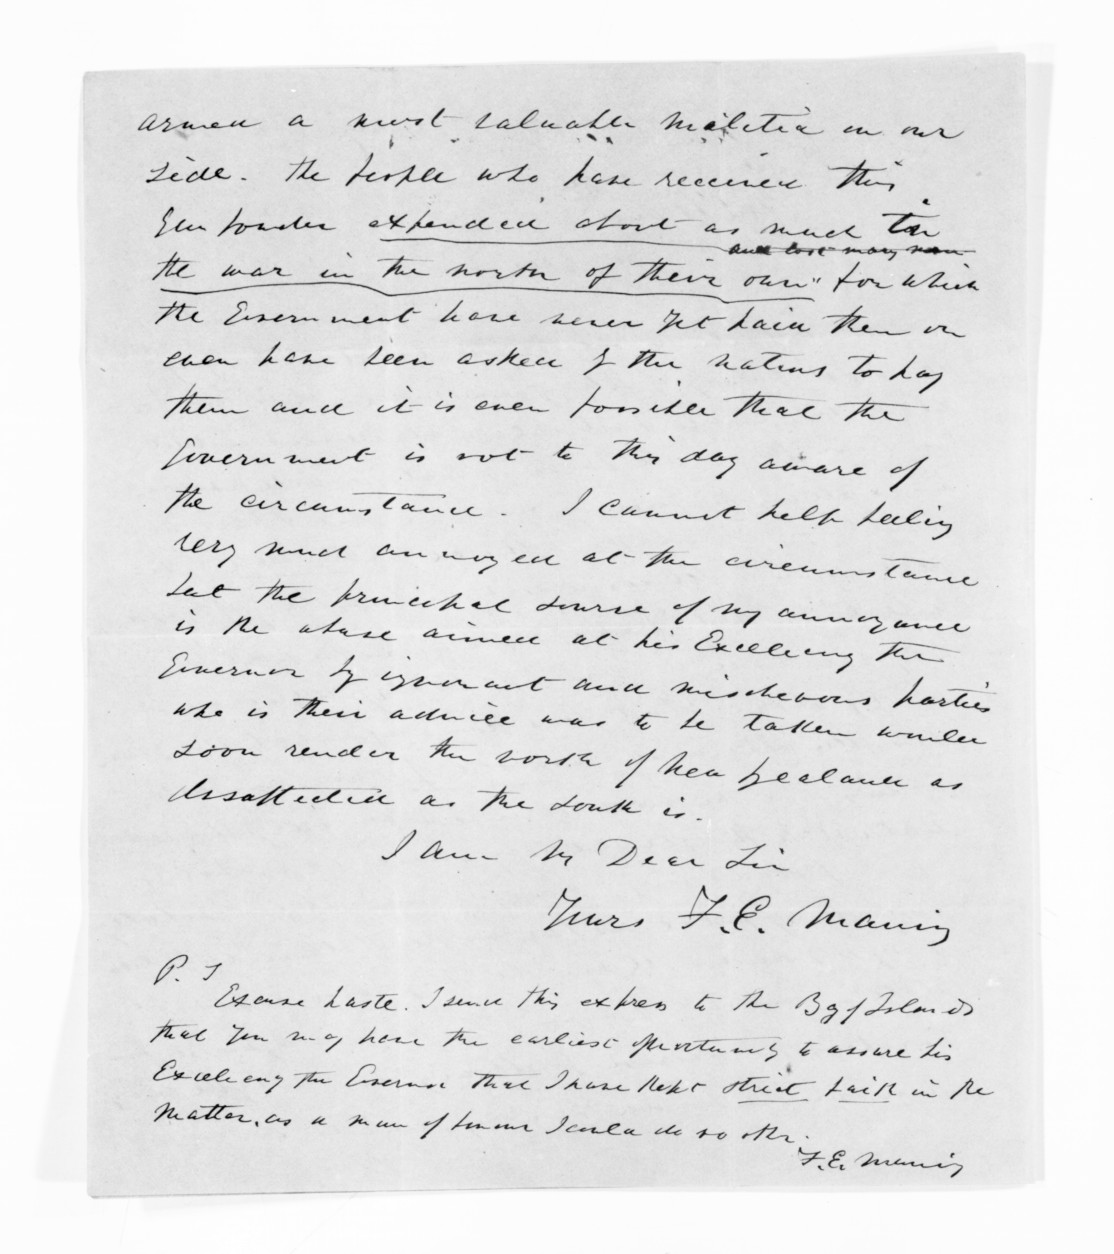 armed a most valuable militia on our
side. The people who have received this
Gun powder expended about as much in
and lost many men
the war in the north of their own" for which
the Government have never yet paid them or
even have been asked by the natives to pay
them and it is even possible that the
Government is not to this day aware of
the circumstance. I cannot help feeling
very much annoyed at the circumstance
but the principal source of my annoyance
is the abuse aimed at his Excellency the
Governor by ignorant and mischevous parties
who is their advice was to be taken would
soon render the north of New Zealand as
disaffected as the South is.
I am My Dear Sir
Yours F.E. Maning
P. S
Excuse haste. I send this express to the Bay of Islands
that you may have the earliest opportunity to assure his
Excellency the Governor that I have kept strict faith in the
matter, as a man of honour I could do no other.
F.E. Maning